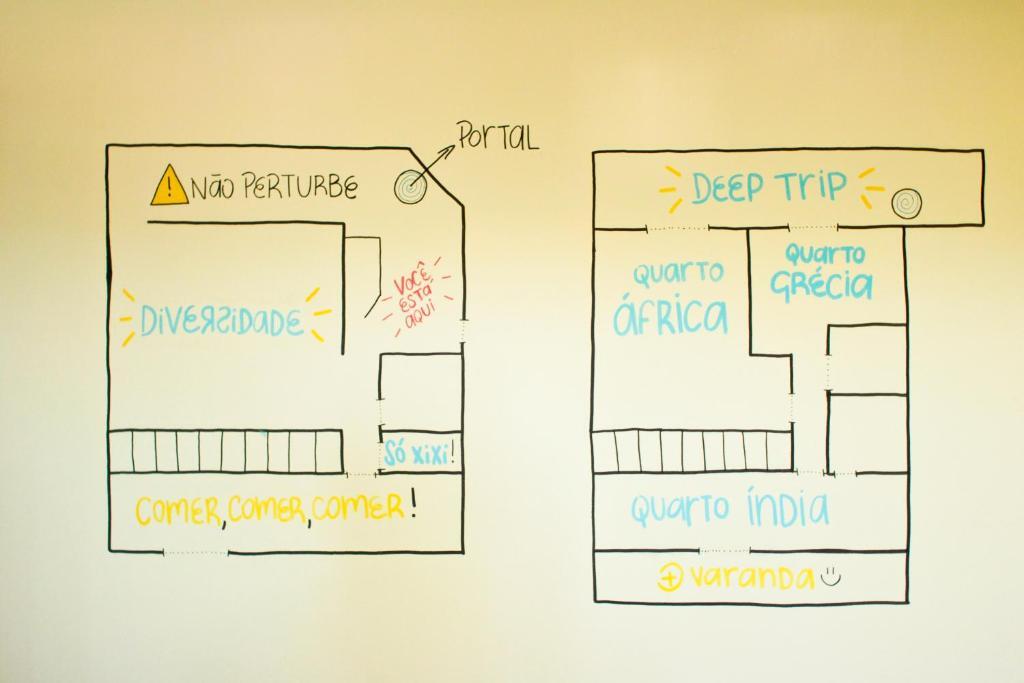 PORTAL
! NÃO PERTURBE
VOCÊ
ESTÁ
AQUI
DIVERSIDADE
Só xixi!
COMER, COMER, COMER!
DEEP TRIP
QUARTO
GRÉCIA
QUARTO
ÁFRICA
QUARTO ÍNDIA
+ varanda